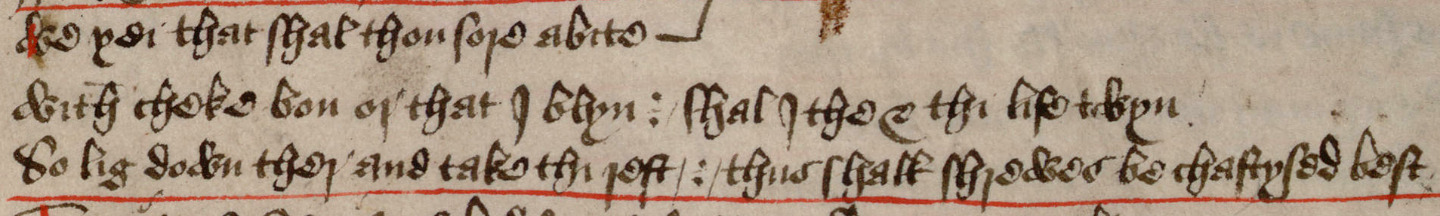 we yei that shal thou sore abite
with cheke bon or that I blyn : shal I the & thi life twyn
So lig down ther and take thi rest : thus shall shrewes be chastysed best